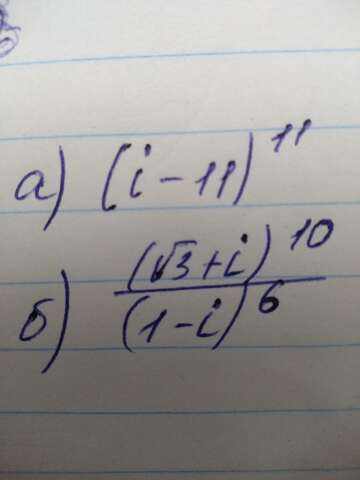 а) (i - 11)^11
б) (√3 + i)^10
(1 - i)^6